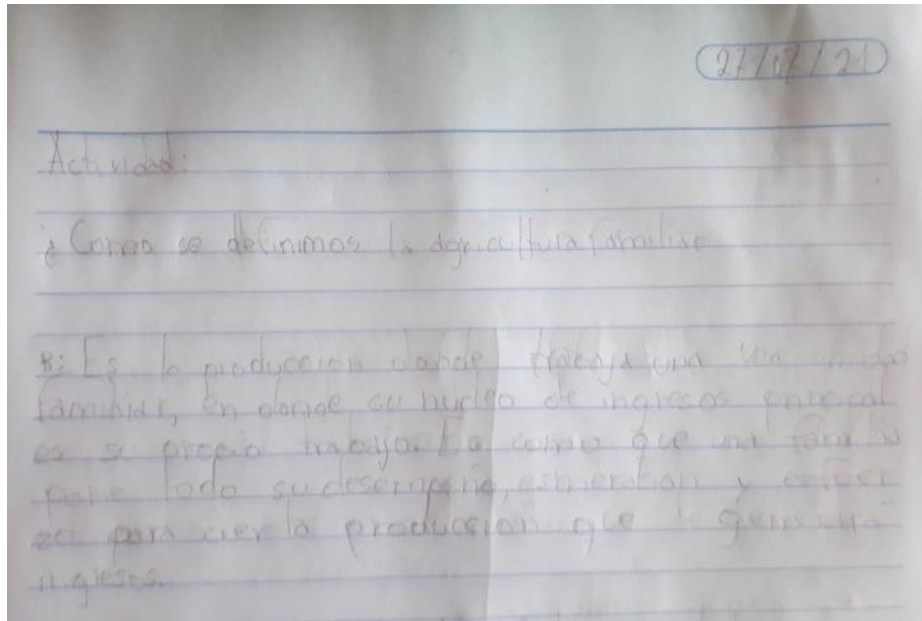 27/07/21
Actividad:
¿Como se definimos la agricultura familiar
R: Es la producción donde trabaja una
familiar, en donde su nucleo de ingresos
es su propio trabajo. Es como que una familia
pone todo su desempeño, y esfuer
zo para cierta producción que le
ingresos.